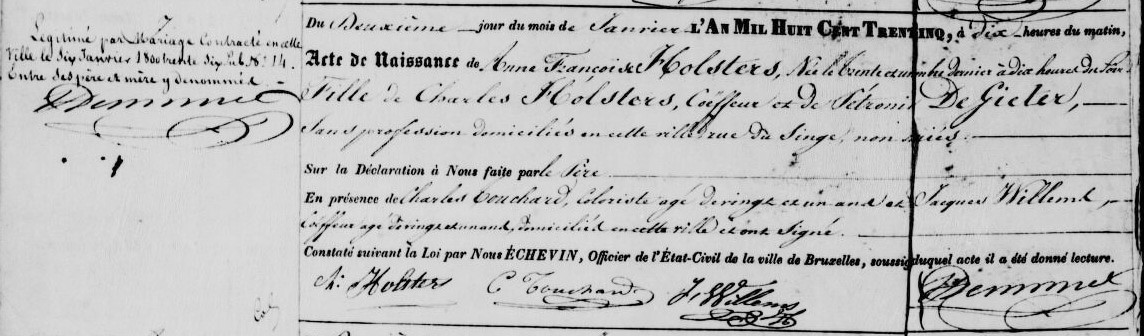 Légitimé par Mariage Contracté en cette
Ville le Six Janvier 1800 trente Six sub N° 14.
Entre Ses père et mère y dénommés
Demmmel
Du Deuxième jour du mois de Janvier L'AN MIL HUIT CENT TRENTE CINQ, à Dix heures du matin,
Acte de Naissance de Anne Françoise Holsters, Née le trente et un dernier à dix heures du Soir
Fille de Charles Holsters, Coiffeur et de Pétronille De Gieter,
Sans profession domiciliés en cette ville rue du Singe, non mariés.
Sur la Déclaration à Nous faite par le Père
En présence de Charles Touchard, Coloriste agé de vingt et un ans et Jacques Willems,
Coiffeur agé de vingt et un ans, domiciliés en cette ville et ont Signé.
Constaté suivant la Loi par Nous ÉCHEVIN, Officier de l'État-Civil de la ville de Bruxelles, soussigné duquel acte il a été donné lecture.
Ch: Holsters C Touchard J. Willems